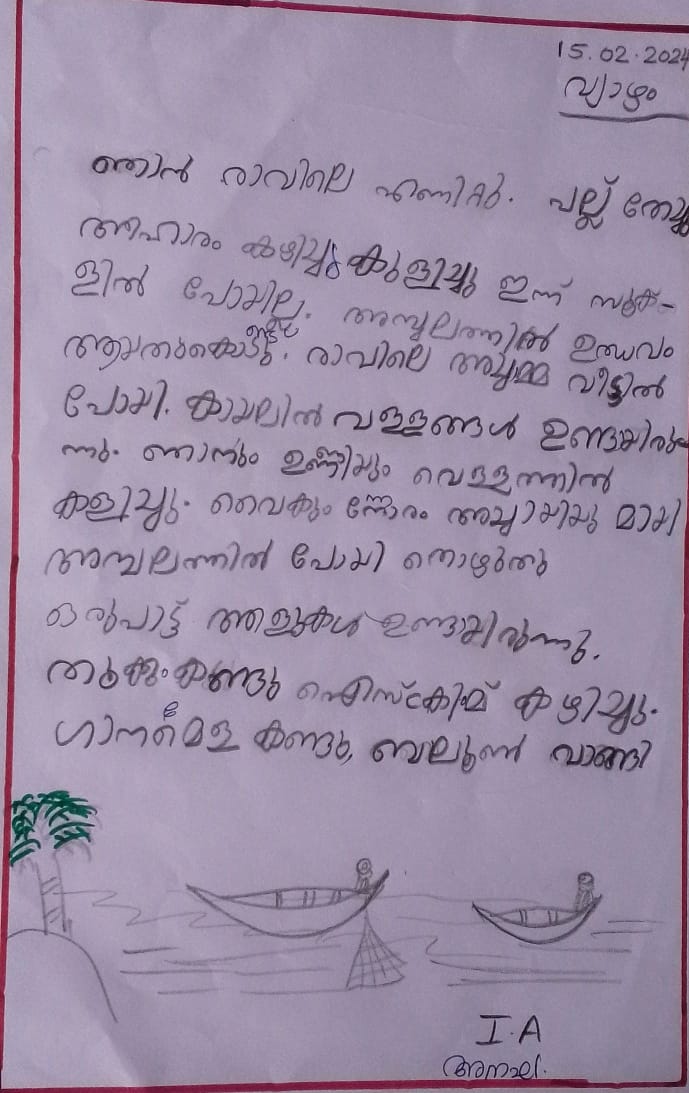 15.02.2024
വ്യാഴം
ഞാൻ രാവിലെ എണിറ്റു. പല്ല് തേച്ചു
ആഹാരം കഴിച്ചു കുളിച്ചു ഇന്ന് സ്കൂ-
ളിൽ പോയില്ല. അമ്പലത്തിൽ ഉത്സവം
ആയതുകൊണ്ട്. രാവിലെ അച്ചമ്മ വീട്ടിൽ
പോയി. കായലിൽ വള്ളങ്ങൾ ഉണ്ടായിരു
ന്നു. ഞാനും ഉണ്ണിയും വെള്ളത്തിൽ
കളിച്ചു. വൈകുംന്നേരം മാമി
അമ്പലത്തിൽ പോയി തൊഴുതു
ഒരുപാട്ട് ആളുകൾ ഉണ്ടായിരുന്നു.
കണ്ടു ഐസ്ക്രിമ് കഴിച്ചു.
ഗാനമേള കണ്ടു, ബലൂൺ വാങ്ങി
I.A